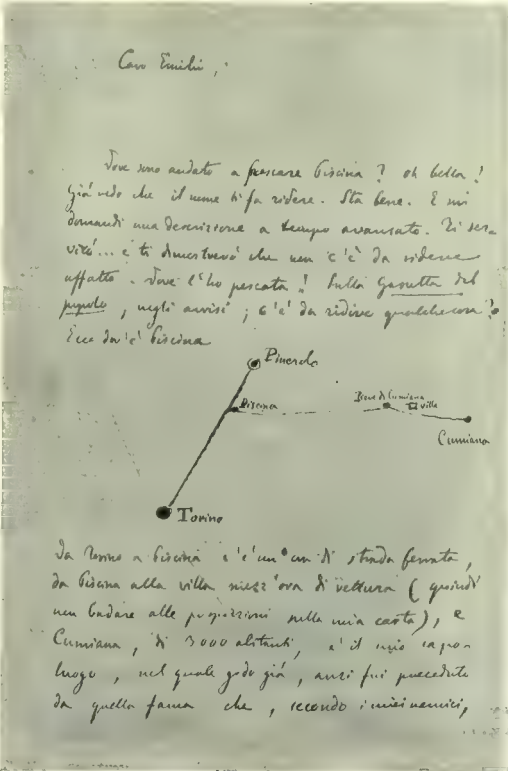 Caro Emilio,
Dove sono andato a pescare Piscina? oh bella!
Già vedo che il nome ti fa ridere. Sta bene. E mi
domandi una descrizione a tempo avanzato. Ti ser-
virò... e ti dimostrerò che non c'è da ridere
affatto. Dove l'ho pescata! Sulla Gazzetta del
popolo, negli avvisi; c'è da ridire qualchecosa?
Ecco dov'è Piscina
Pinerolo
Piscina
Pieve di Cumiana
villa
Cumiana
Torino
Da Torino a Piscina c'è un' di strada ferrata,
da Piscina alla villa mezz'ora di vettura (quindi
non badare alle proporzioni nella mia carta), e
Cumiana, di 3000 abitanti, è il mio capo-
luogo, nel quale godo già, anzi fui preceduto
da quella fama che, secondo i miei nemici,